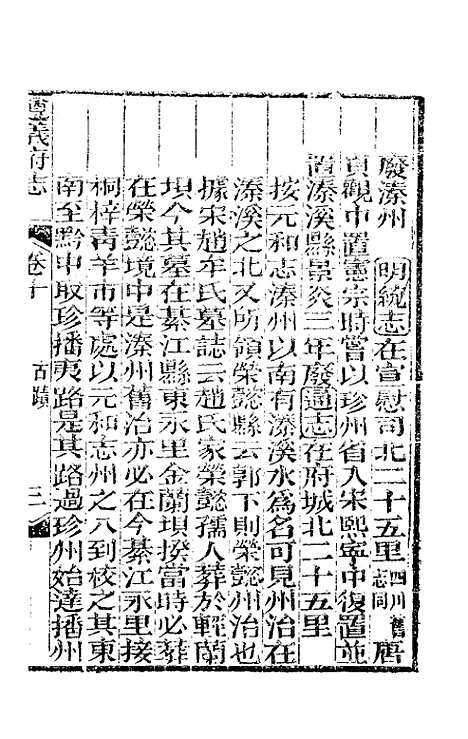 廢溱州 明統志在宣慰司北二十五里四川舊志同唐
貞觀中置憲宗時嘗以珍州省入宋熙寧中復置並
置溱溪縣景炎三年廢通志在府城北二十五里
按元和志溱州以南有溱溪水爲名可見州治在
溱溪之北又所領榮懿縣云郭下則榮懿州治也
據宋趙牟氏墓誌云趙氏家榮懿孺人葬於輕蘭
埧今其墓在綦江縣東永里金蘭埧揆當時必葬
在榮懿境中是溱州舊治亦必在今綦江永里接
桐梓靑羊市等處以元和志州之八到校之其東
南至黔中取珍播夷路是其路過珍州始達播州
遵義府志
卷十
古蹟
三